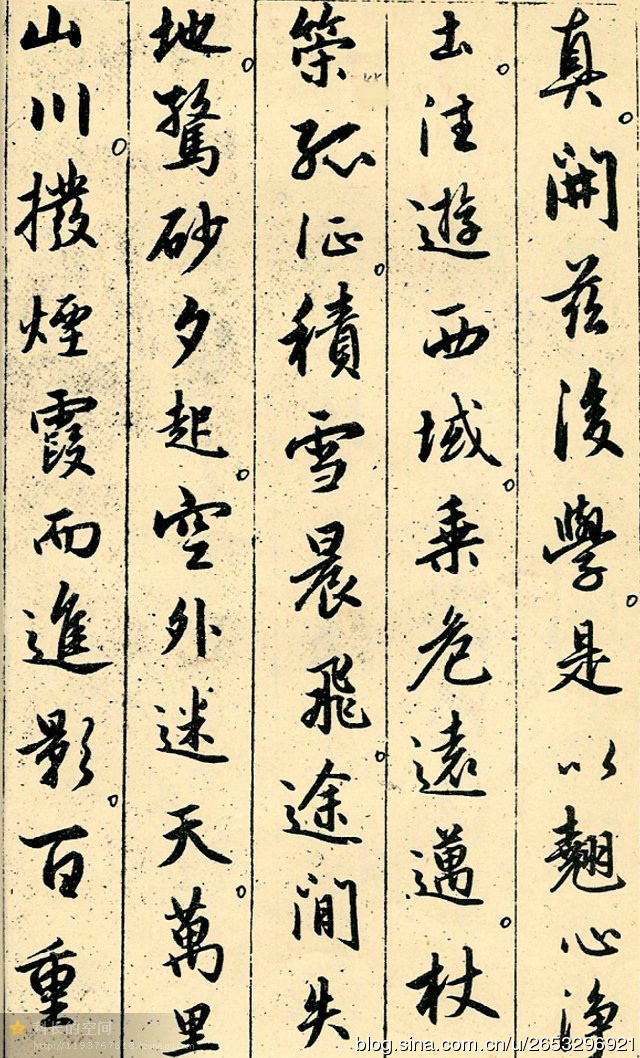 真。開茲後學。是以翹心淨
土。注遊西域。乗危遠邁。杖
策孤征。積雪晨飛。途間失
地。驚砂夕起。空外迷天。萬里
山川。撥煙霞而進影。百重
科长的空间
blog.sina.com.cn/u/2653296921